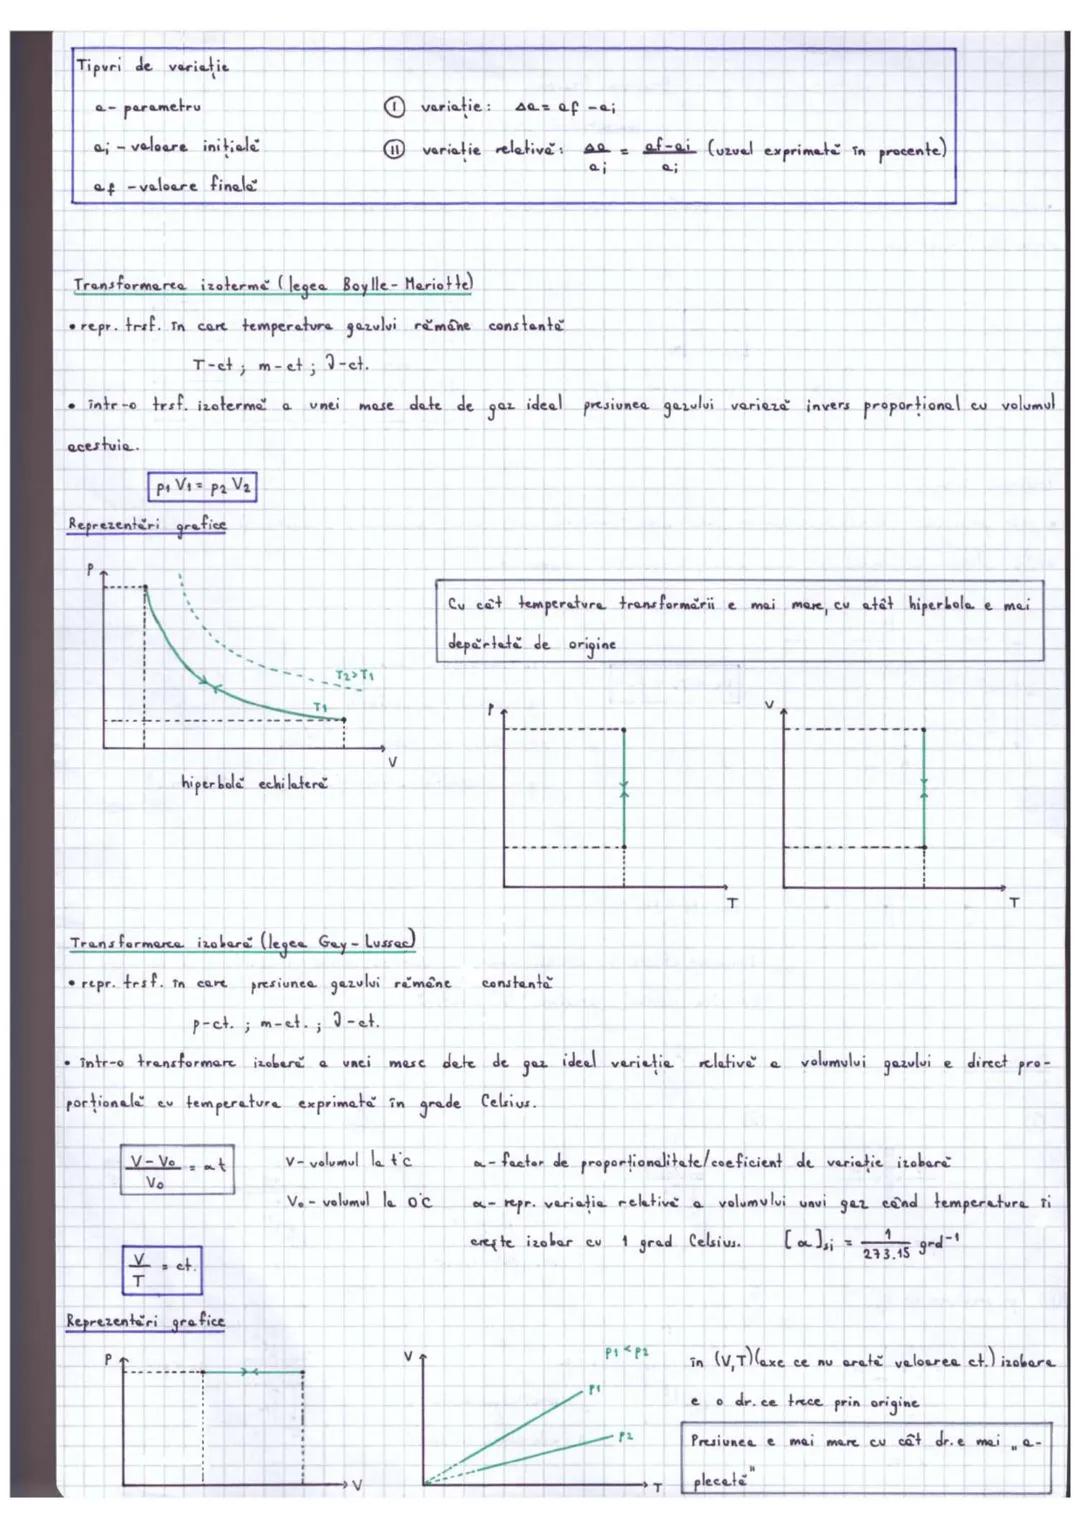 Tipuri de variație
a - parametru
ai - valoare inițială
af - valoare finală
Ⓘ variație: Δa = af - ai
Ⓘⓘ variație relativă: Δa/ai = af-ai/ai (uzual exprimată în procente)
Transformarea izotermă (legea Boylle-Mariotte)
• repr. trsf. în care temperatura gazului rămâne constantă
T-ct; m-ct; ϑ-ct.
• într-o trsf. izotermă a unei mase date de gaz ideal presiunea gazului variază invers proporțional cu volumul
acestuia.
p1 V1 = p2 V2
Reprezentări grafice
P
T2>T1
T1
V
hiperbolă echilateră
Cu cât temperatura transformării e mai mare, cu atât hiperbola e mai
depărtată de origine
P
T
V
T
Transformarea izobară (legea Gay-Lussac)
• repr. trsf. în care presiunea gazului rămâne constantă
p-ct. ; m-ct. ; ϑ-ct.
• într-o transformare izobară a unei mase date de gaz ideal variația relativă a volumului gazului e direct pro-
porțională cu temperatura exprimată în grade Celsius.
V-V0/V0 = αt
V - volumul la t°C
V0 - volumul la 0°C
α - factor de proporționalitate/coeficient de variație izobară
α - repr. variația relativă a volumului unui gaz când temperatura îi
crește izobar cu 1 grad Celsius. [α]si = 1/273.15 grd-1
V/T = ct.
Reprezentări grafice
P
V
V
P1<P2
P1
P2
T
în (V,T)(axe ce nu arată valoarea ct.) izobara
e o dr. ce trece prin origine
Presiunea e mai mare cu cât dr. e mai „a-
plecată"